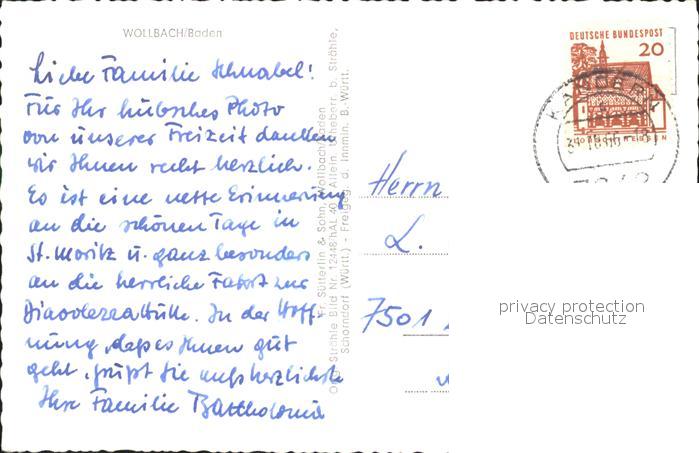 WOLLBACH/Baden
Liebe Familie Schnabel!
Für Ihr hübsches Photo
von unserer Freizeit danken
wir Ihnen recht herzlich.
Es ist eine nette Erinnerung
an die schönen Tage in
St. Moritz u. ganz besonders
an die herrliche Fahrt zur
Diavolezzahütte. In der Hoff-
nung, dass es Ihnen gut
geht, grüßt Sie aufs herzlichste
Ihre Familie Bartholomä
Fr. Sütterlin & Sohn, Wollbach/Baden
O Strähle Bild Nr. 12448 hAL 40 Allein. Urheberr. b. Strähle,
Schorndorf (Württ.) - Freigeg. d. Innmin. B.-Württ.
DEUTSCHE BUNDESPOST
20
KANDERN
Herrn
L.
7501
privacy protection
Datenschutz